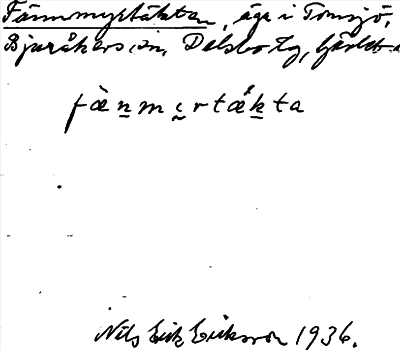 Fännmyrtäkten, äga i Tomsjö,
Bjuråkers sn, Delsbo tg,
fæ̀n̲my̬rtæ̂k̲ta
Nils Erik Eriksson 1936.